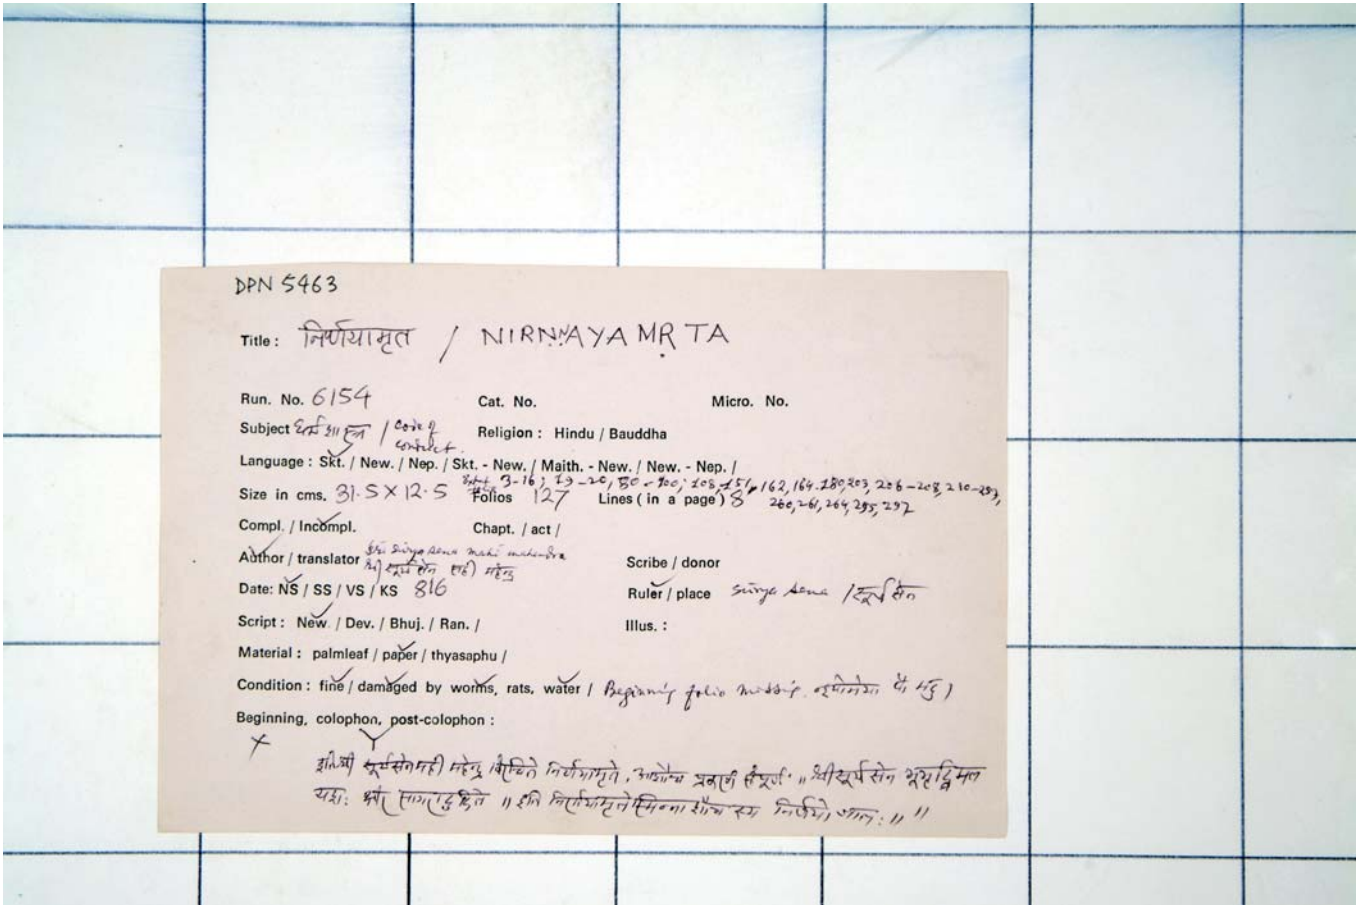 DPN 5463
Title : निर्णयामृत / NIRṆAYAMṚTA
Run. No. 6154 Cat. No. Micro. No.
Subject धर्मशास्त्र / code of conduct. Religion : Hindu / Bauddha
Language : Skt. / New. / Nep. / Skt. - New. / Maith. - New. / New. - Nep. /
3-16; 19-20, 80-100, 108, 151, 162, 164-180, 203, 206-208, 210-257,
Size in cms. 31.5 X 12.5 Folios 127 Lines ( in a page ) 8 260, 261, 264, 295, 297
Compl. / Incompl. Chapt. / act /
Author / translator Sri Surya sena mahi mahendra Scribe / donor
श्री सूर्य सेन मही महेन्द्र
Date: NS / SS / VS / KS 816 Ruler / place Surya sena / सूर्य सेन
Script : New. / Dev. / Bhuj. / Ran. / Illus. :
Material : palmleaf / paper / thyasaphu /
Condition : fine / damaged by worms, rats, water / Beginning folio missing.
Beginning, colophon, post-colophon :
इति श्री सूर्यसेन मही महेन्द्र विरचिते निर्णयामृते, आशौच प्रकरणं संपूर्णं ॥ श्री सूर्य सेन
॥ इति निर्णयामृते निर्णयो ॥